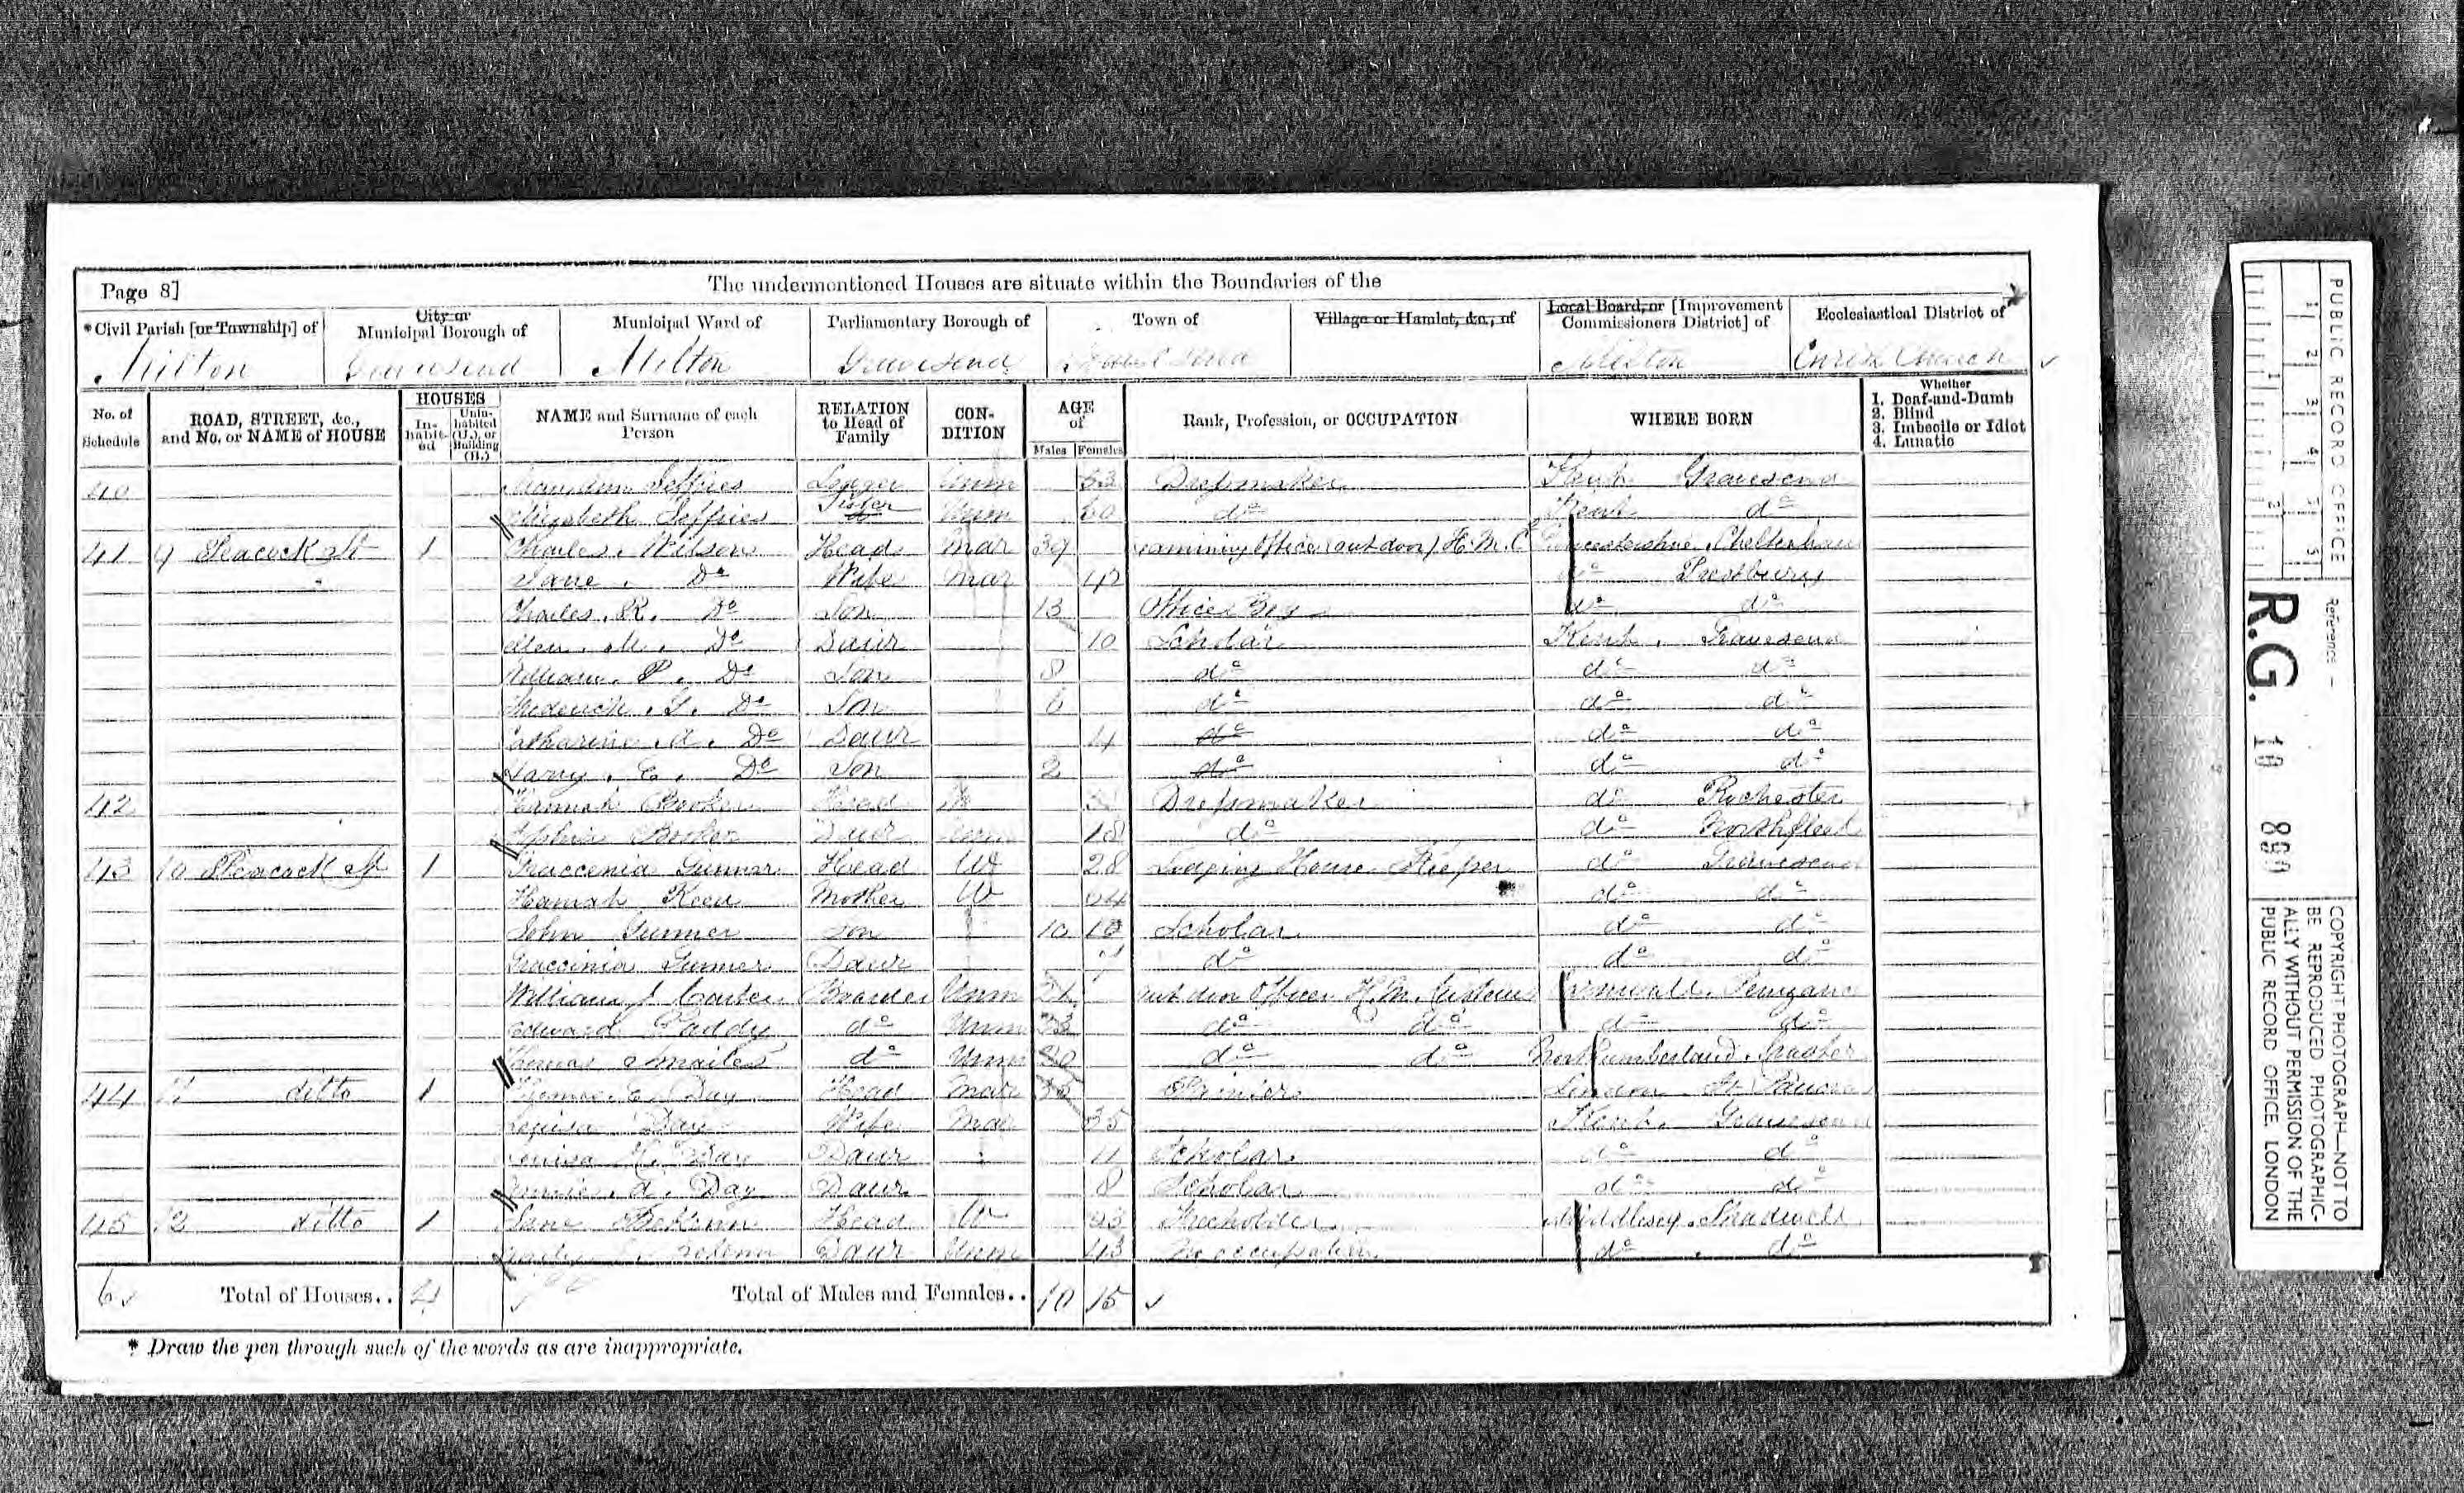 Page 8]
The undermentioned Houses are situate within the Boundaries of the
*Civil Parish [or Township] of
City or Municipal Borough of
Municipal Ward of
Parliamentary Borough of
Town of
Village or Hamlet, &c., of
Local Board, or [Improvement Commissioners District] of
Ecclesiastical District of
Milton Gravesend Milton Gravesend Milton Church
No. of Schedule
ROAD, STREET, &c., and No. or NAME of HOUSE
HOUSES
Inhabited
Uninhabited (U.), or Building (B.)
NAME and Surname of each Person
RELATION to Head of Family
CONDITION
AGE of
Males Females
Rank, Profession, or OCCUPATION
WHERE BORN
Whether
1. Deaf-and-Dumb
2. Blind
3. Imbecile or Idiot
4. Lunatic
40 Jeffries Lodger Unm 53 Dressmaker Kent Gravesend
Elizabeth Jeffries Sister Unm 60 do Kent do
41 9 Peacock St 1 Charles Wilson Head Mar 39 Examining Officer (outdoor) H.M.C Gloucestershire, Cheltenham
Jane Do Wife Mar 42 do Prestbury
Charles. R. Do Son 13 Office Boy do do
M. Do Daur 10 Scholar Kent, Gravesend
William. P. Do Son 8 do do do
Frederick. G. Do Son 6 do do do
Catharine. A. Do Daur 4 do do do
Harry. E. Do Son 2 do do do
42 Hannah Booker Head W Dressmaker do Rochester
Booker Daur Unm 18 do do Northfleet
43 10 Peacock St 1 Gunner Head W 28 Lodging House Keeper do Gravesend
Hannah Keen Mother W 64 do do
John Gunner Son 10 10 Scholar do do
Gunner Daur 7 do do do
William J Boarder Unm 21 out door Officer H.M. Customs Cornwall. Penzance
Edward Paddy do Unm do do do do
Thomas Smailes do Unm 20 do do Northumberland.
44 11 ditto 1 E. Day Head Mar 35 London St Pancras
Louisa Day Wife Mar 35 Kent. Gravesend
Louisa Day Daur 11 Scholar do do
Annie. A. Day Daur 8 Scholar do do
45 12 ditto 1 Jane Head W Freeholder Middlesex. Shadwell
Daur Unm 43 No occupation do do
6 Total of Houses.. 4 Total of Males and Females.. 10 15
* Draw the pen through such of the words as are inappropriate.
PUBLIC RECORD OFFICE
1 2 3 4 5
Reference -
R.G. 10 890
COPYRIGHT PHOTOGRAPH—NOT TO
BE REPRODUCED PHOTOGRAPHIC-
ALLY WITHOUT PERMISSION OF THE
PUBLIC RECORD OFFICE, LONDON